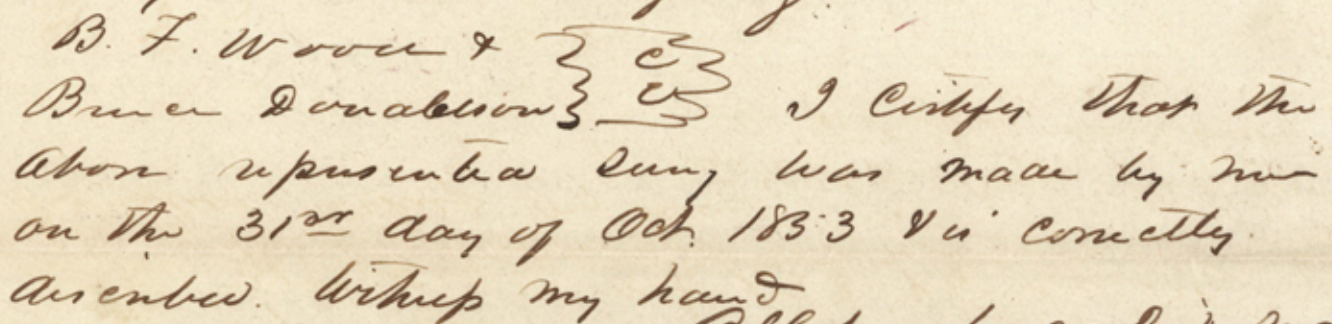 B. F. Wood &
Bruce Donaldson } C C I Certify that the
above represented Survy was made by me
on the 31st day of Oct. 1853 & is correctly
described. Witness my hand